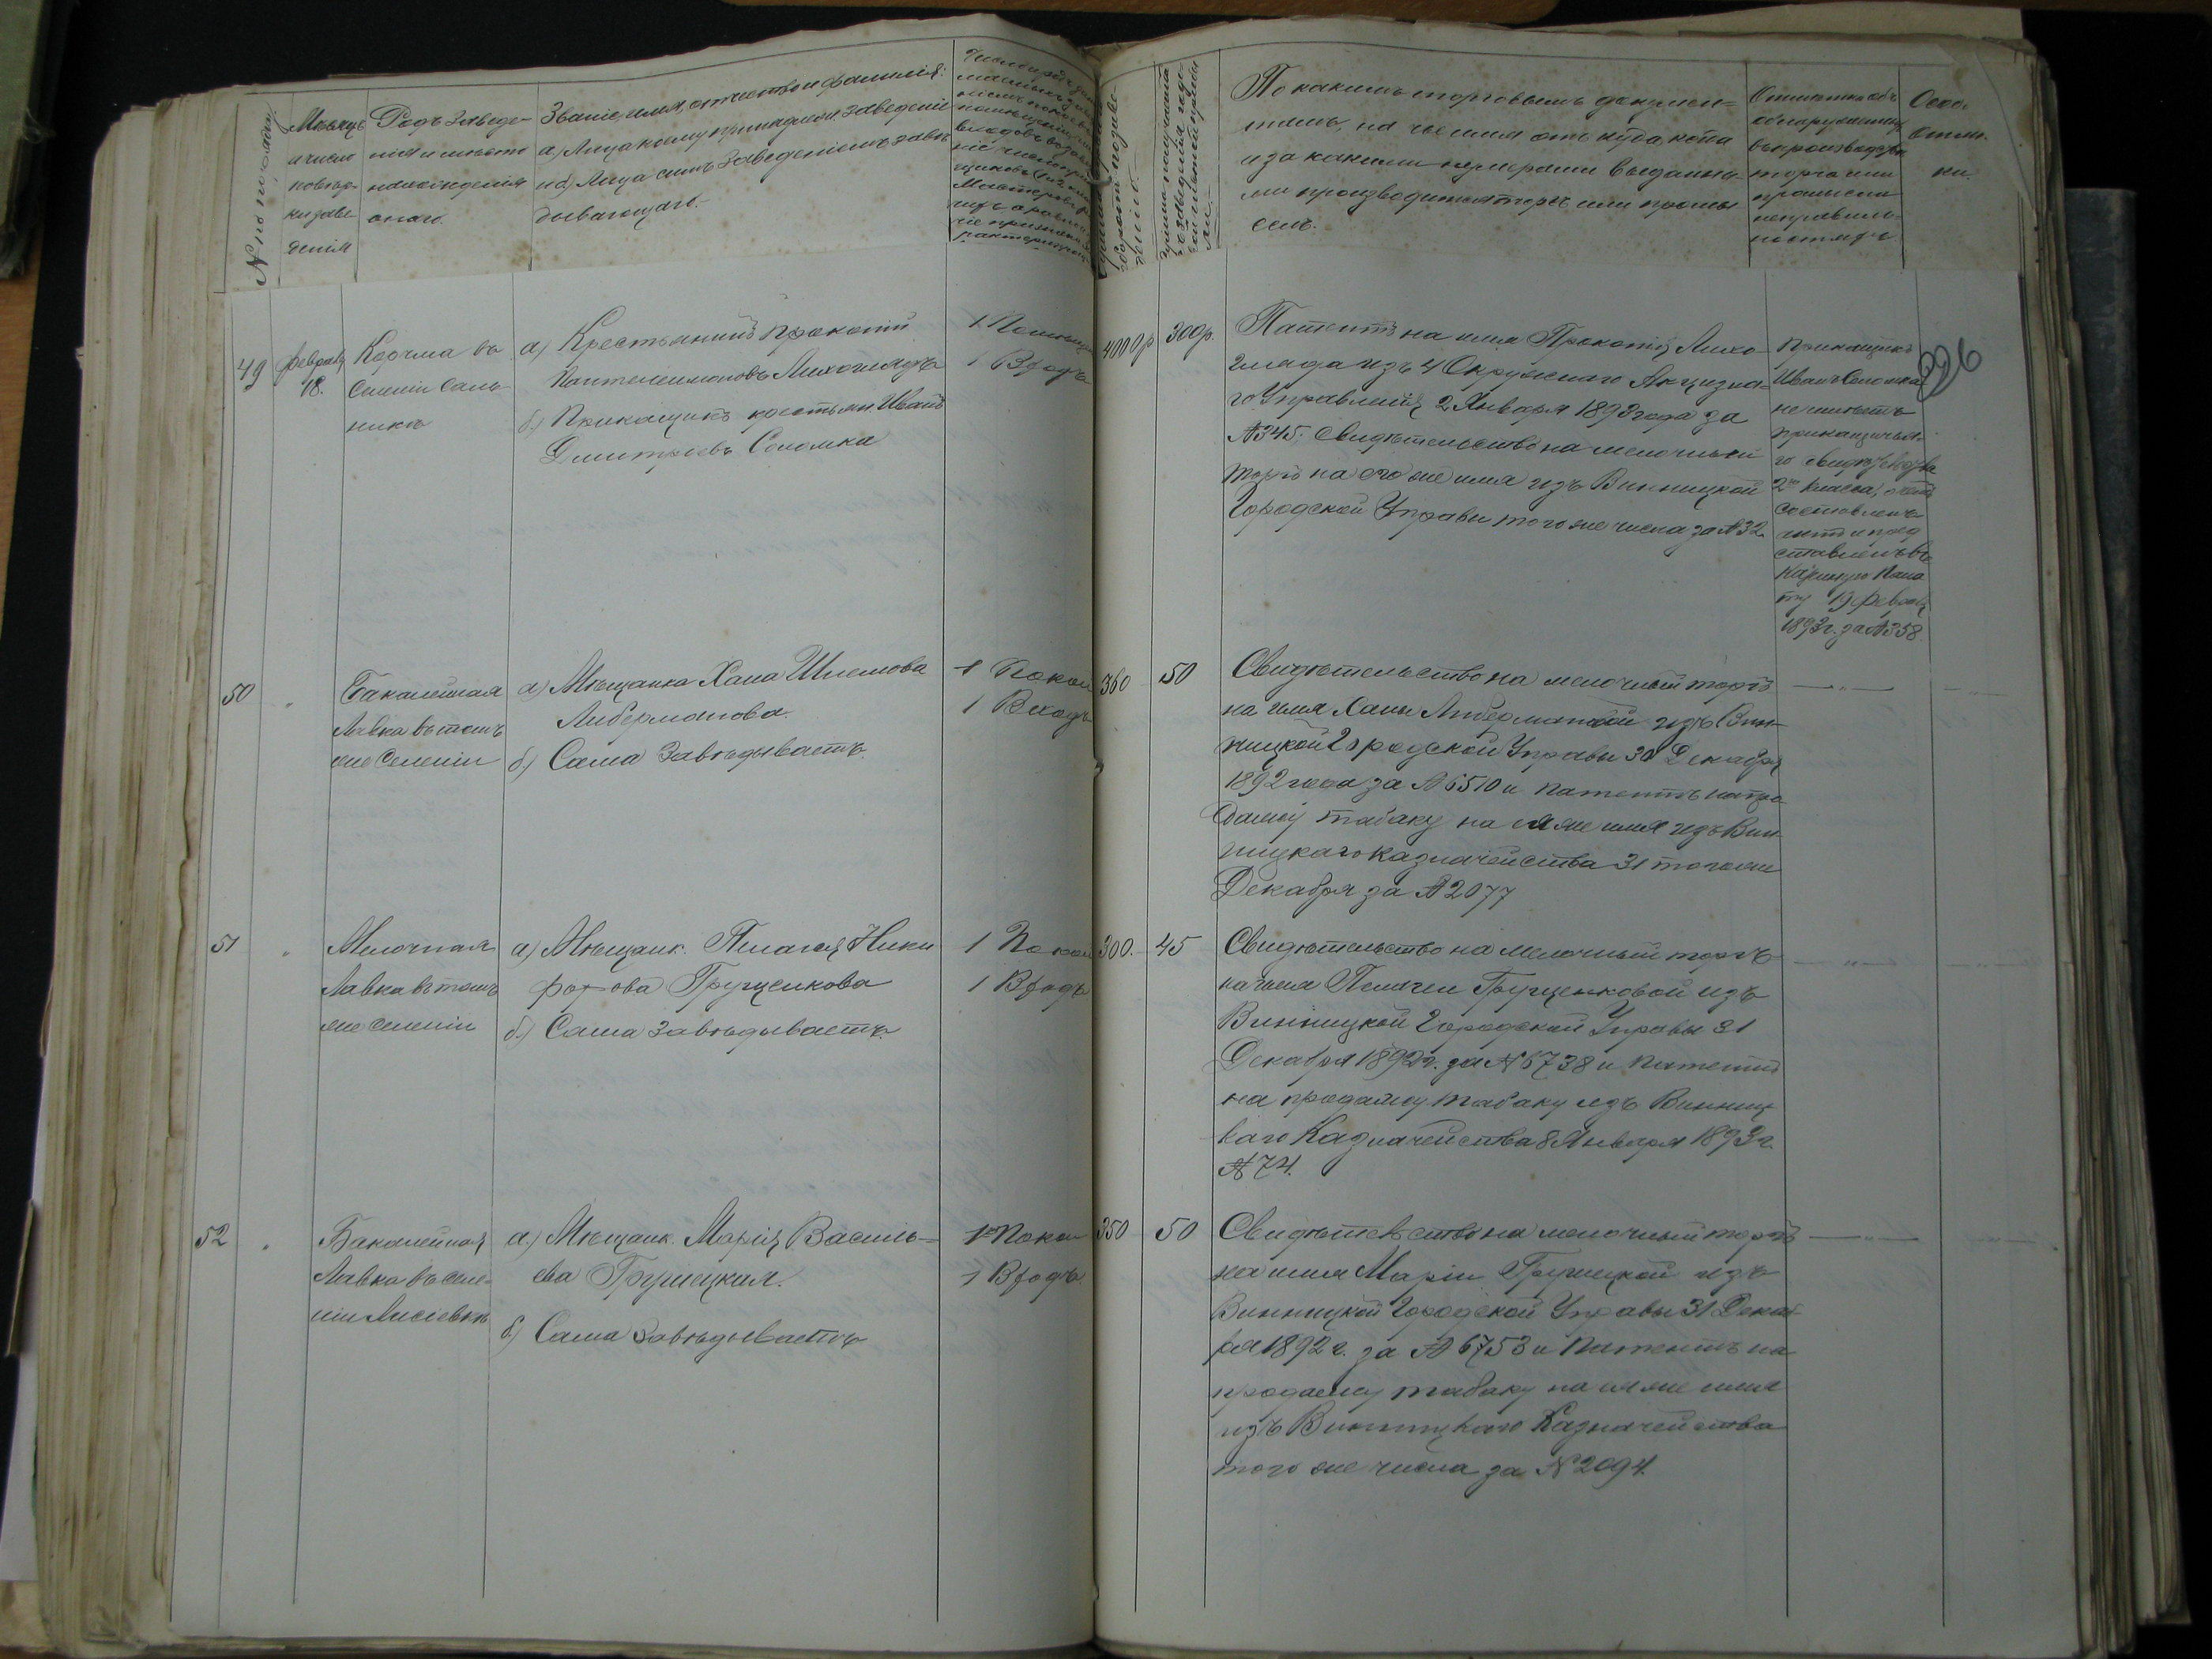 № по порядку
Мѣсяцъ
и число
повѣр-
ки заве-
денія
Родъ Заведе-
нія и мѣсто
нахожденія
онаго.
Званіе, имя, отчество и фамилія:
а) Лица кому принадлеж. заведеніе
и б) Лица симъ Заведеніемъ завѣ
дывающаго.
По какимъ торговымъ докумен-
тамъ, на чье имя отъ куда, когда
и за какими нумерами выданны-
ми производится торгъ или промы
селъ.
Отмѣтка объ
обнаруженныхъ
въ производствѣ
торга или
промысла
неправиль-
ностяхъ.
Особ.
отмѣт-
ки.
226
49
февраля
18.
Корчма въ
Селеніи Саль-
никѣ
а) Крестьянинъ Прокопій
Пантелеимоновъ Лихогляд​ъ
б) Прикащикъ крестьян. Иванъ
Дмитріевъ Соломка
1 Помѣщ
1 Входъ
4000 р
300 р.
Патентъ на имя Прокопія Лихо-
гляда изъ 4 Окружнаго Акцизна-
го Управленія 2 Января 1893 года за
№ 345. Свидѣтельство на мелочный
торгъ на его же имя изъ Винницкой
Городской Управы того же числа за № 32.
Прикащикъ
Иванъ Соломка
не имѣетъ
прикащичья-
го свидѣтельства
2го класса, о чемъ
составленъ
актъ и пред
ставленъ въ
Казенную Пала
ту 19 февраля
1893 г. за № 358
50
"
Бакалейная
Лавка въ томъ
же Селеніи
а) Мѣщанка Хана Шлемова
Либерманова.
б) Сама Завѣдываетъ.
1 Покой
1 Входъ
360
50
Свидѣтельство на мелочный торгъ
на имя Ханы Либермановой изъ Вин-
ницкой Городской Управы 30 Декабря
1892 года за № 6510 и патентъ на про
дажу табаку на ея же имя изъ Вин
ницкаго Казначейства 31 того же
Декабря за № 2077
— " —
51
"
Мелочная
Лавка въ томъ
же селеніи
а) Мѣщанк. Пелагея Ники
форова Грущенкова
б) Сама Завѣдываетъ.
1 Покой
1 Входъ
300.
45
Свидѣтельство на Мелочный торгъ
на имя Пелагеи Грущенковой изъ
Винницкой Городской Управы 31
Декабря 1892 г. за № 6738 и Патентъ
на продажу табаку изъ Винниц
каго Казначейства 8 Января 1893 г.
№ 74.
— " —
52
"
Бакалейная
Лавка въ селе-
ніи Лисіевкѣ
а) Мѣщанк. Марія Василь-
ева Грушецкая.
б) Сама Завѣдываетъ
1 Покой
1 Входъ.
350
50
Свидѣтельство на мелочный торгъ
на имя Маріи Грушецкой изъ
Винницкой Городской Управы 31 Декаб
ря 1892 г. за № 6753 и Патентъ на
продажу табаку на ея же имя
изъ Винницкаго Казначейства
того же числа за № 2094.
— " —